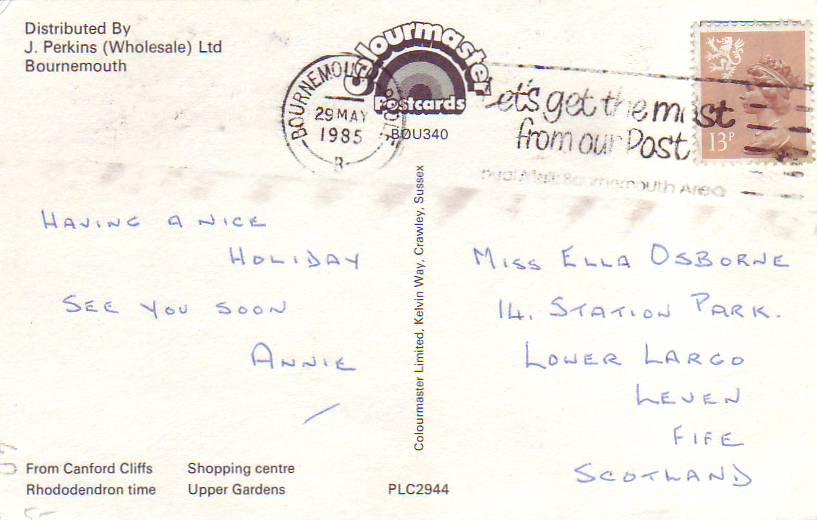 Distributed By
J. Perkins (Wholesale) Ltd
Bournemouth
Colourmaster
Postcards
BOU340
BOURNEMOUTH
29 MAY
1985
B
Let's get the most
from our Post
Bournemouth Area
13P
HAVING A NICE
HOLIDAY
SEE YOU SOON
ANNIE
Colourmaster Limited, Kelvin Way, Crawley, Sussex
MISS ELLA OSBORNE
14, STATION PARK.
LOWER LARGO
LEVEN
FIFE
SCOTLAND
From Canford Cliffs Shopping centre
Rhododendron time Upper Gardens
PLC2944
5-